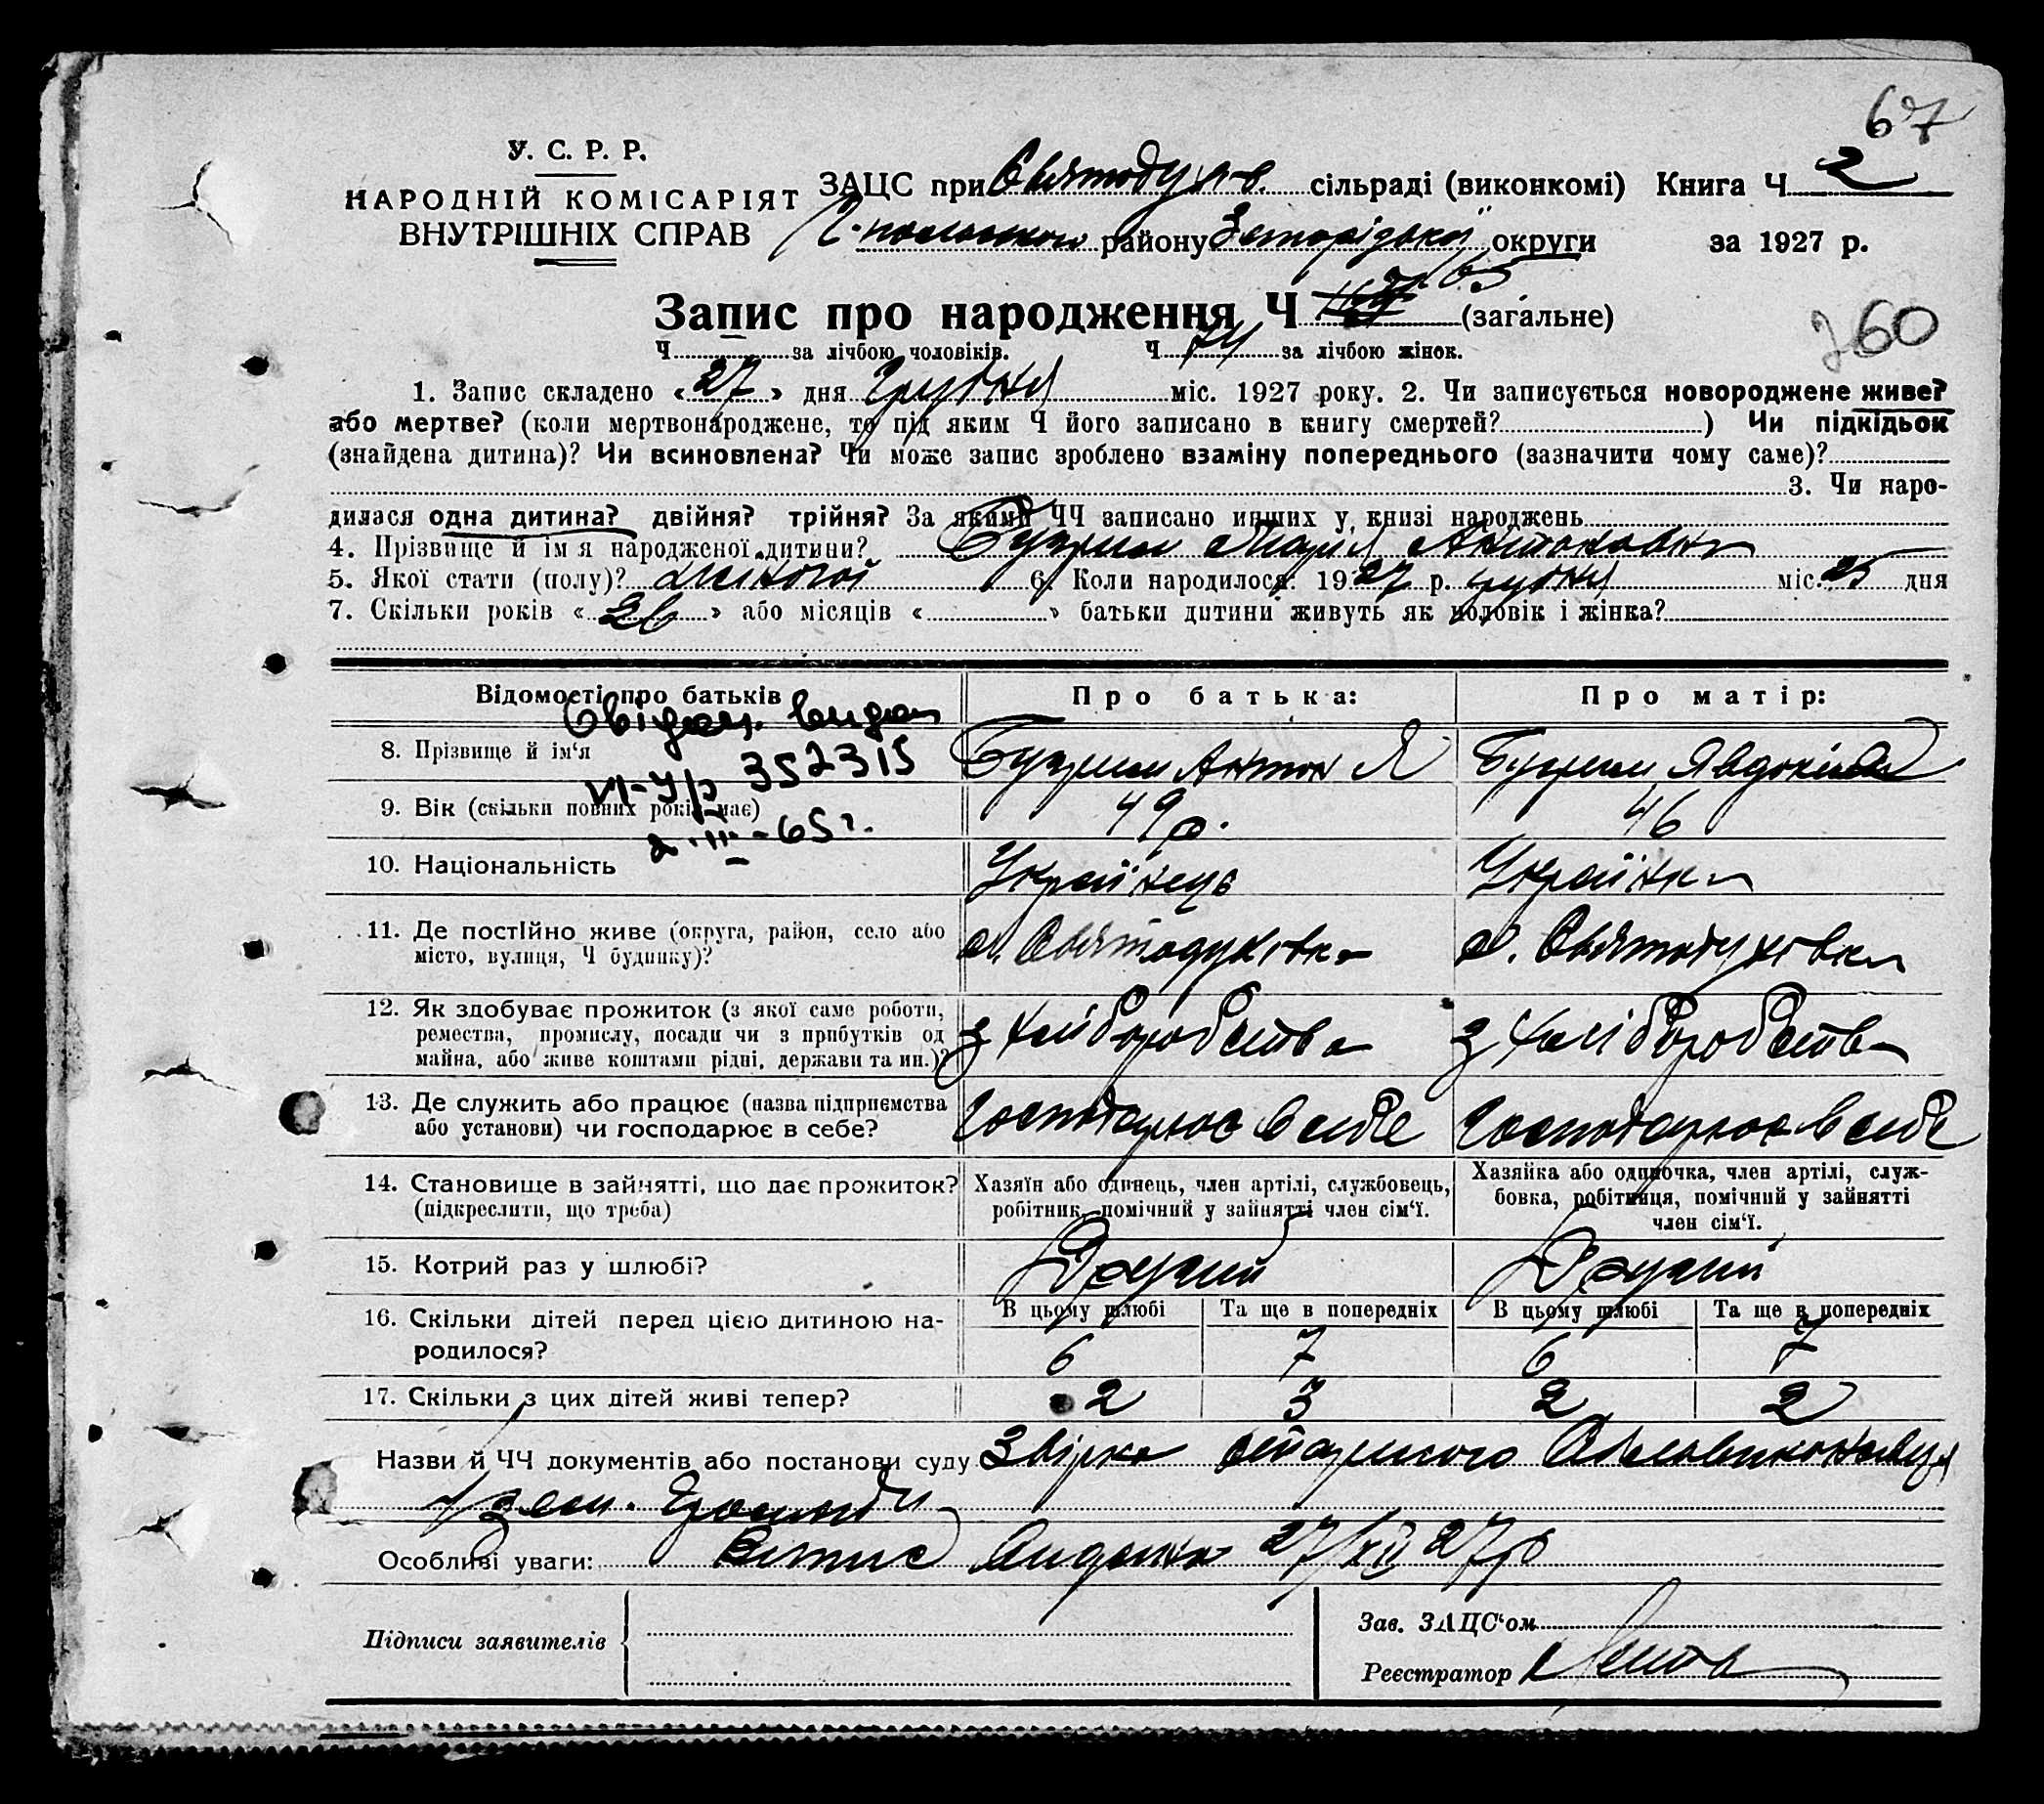 67
У. С. Р. Р.
НАРОДНІЙ КОМІСАРІЯТ
ВНУТРІШНІХ СПРАВ
ЗАЦС при Святодух-в. сільраді (виконкомі) Книга Ч 2
району Запорізької округи за 1927 р.
Запис про народження Ч (загальне)
260
Ч за лічбою чоловіків. Ч 74 за лічбою жінок.
1. Запис складено «27» дня Грудня міс. 1927 року. 2. Чи записується новороджене живе?
або мертве? (коли мертвонароджене, то під яким Ч його записано в книгу смертей? ) Чи підкідьок
(знайдена дитина)? Чи всиновлена? Чи може запис зроблено взаміну попереднього (зазначити чому саме)?
3. Чи наро-
дилася одна дитина? двійня? трійня? За якими ЧЧ записано инших у книзі народжень
4. Прізвище й ім'я народженої дитини? Марія Антоновна
5. Якої стати (полу)? жіночої 6. Коли народилося: 1927 р. грудня міс. 25 дня
7. Скільки років «26» або місяців « » батьки дитини живуть як чоловік і жінка?
Відомості про батьків Про батька: Про матір:
Свідоц. видан
8. Прізвище й ім'я Антон Явдокія
352315
9. Вік (скільки повних років має) 49 р. 46
2-III-65 г.
10. Національність Українець Українка
11. Де постійно живе (округа, район, село або с. Святодухівка с. Святодухівка
місто, вулиця, Ч будинку)?
12. Як здобуває прожиток (з якої саме роботи, з хліборобства з хліборобства
ремества, промислу, посади чи з прибутків од
майна, або живе коштами рідні, держави та ин.)?
13. Де служить або працює (назва підприємства Господарює в себе Господарює в себе
або установи) чи господарює в себе?
14. Становище в зайнятті, що дає прожиток? Хазяїн або одинець, член артілі, службовець, Хазяйка або одиночка, член артілі, служ-
(підкреслити, що треба) робітник, помічний у зайнятті член сім'ї. бовка, робітниця, помічний у зайнятті
член сім'ї.
15. Котрий раз у шлюбі? Другий Другий
В цьому шлюбі Та ще в попередніх В цьому шлюбі Та ще в попередніх
16. Скільки дітей перед цією дитиною на- 6 7 6 7
родилося?
17. Скільки з цих дітей живі тепер? 2 3 2 2
Назви й ЧЧ документів або постанови суду Звірка
Особливі уваги: Витис видано 27/XII 27 р
Підписи заявителів
Зав. ЗАЦС'ом
Реєстратор